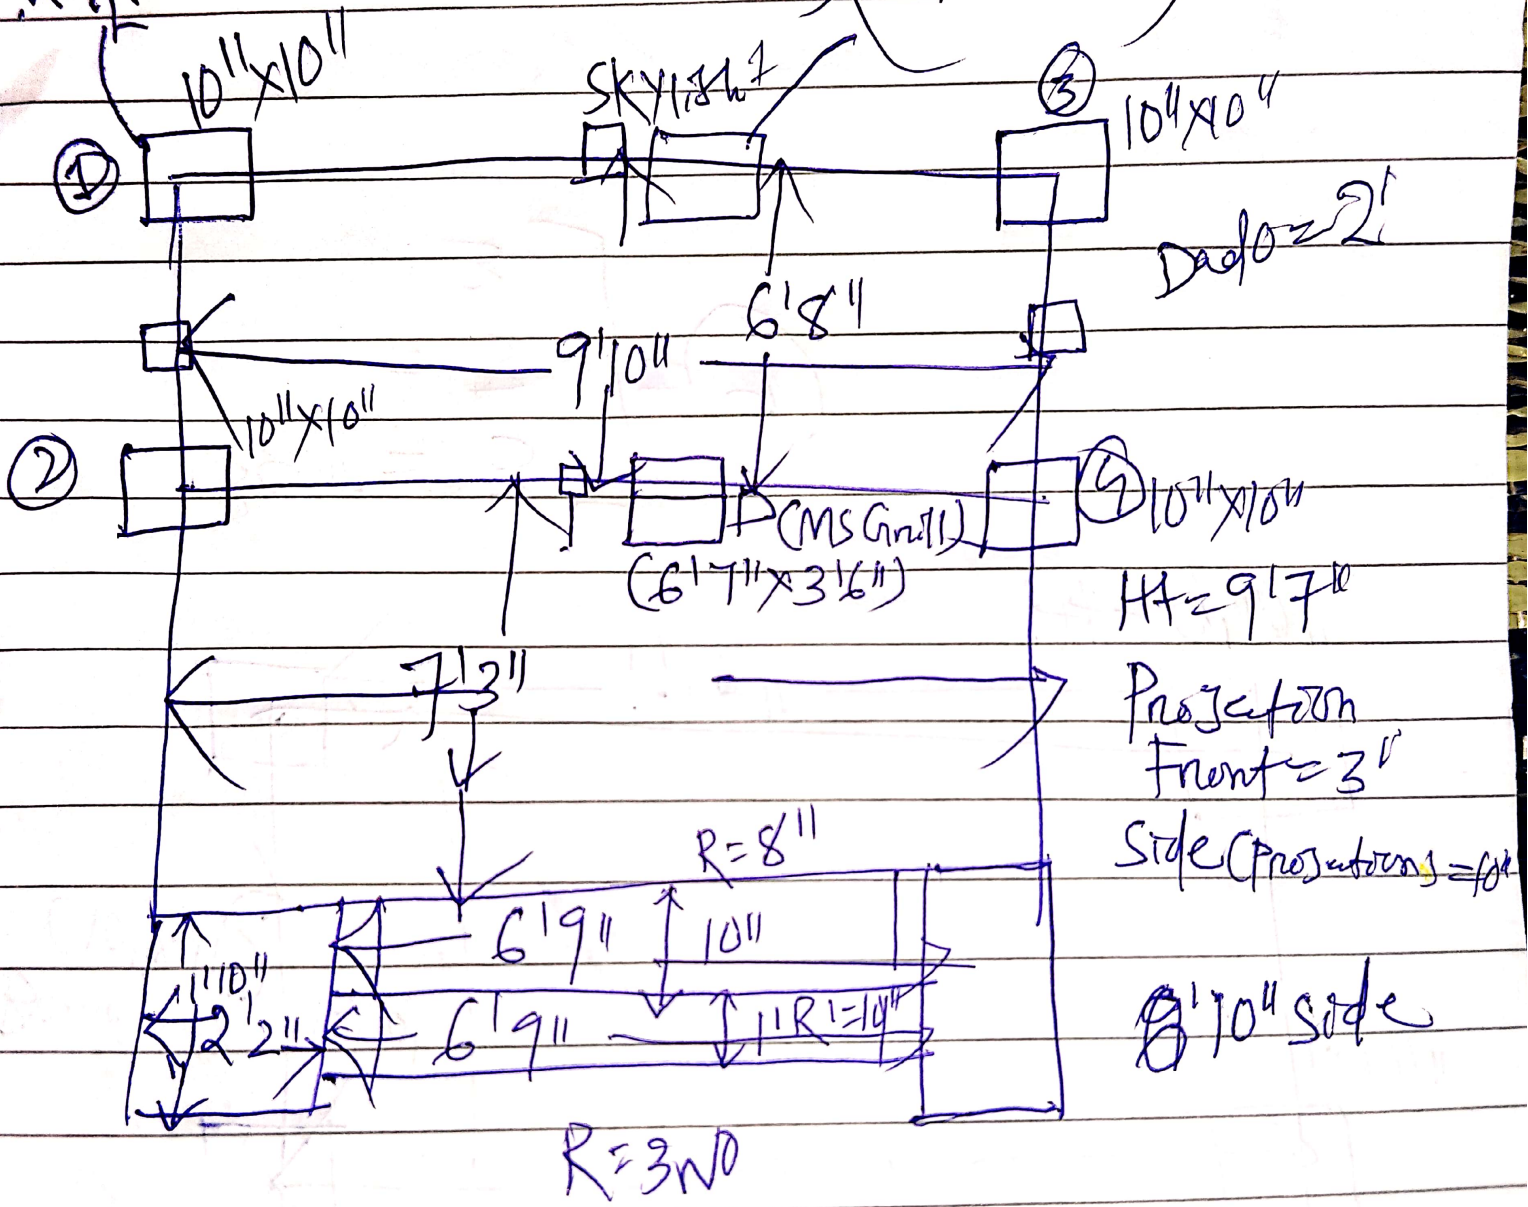 10"x10"
Skylight
3
10"x10"
1
Dado=2'
6'8"
9'10"
10"x10"
2
4
10"x10"
D(MS Grill)
(6'7"x3'6")
Ht=9'7"
7'3"
Projection
Front=3"
R=8"
Side(Projections)=10"
6'9"
10"
1'10"
2'2"
6'9"
1'
8'10" side
R=3NO